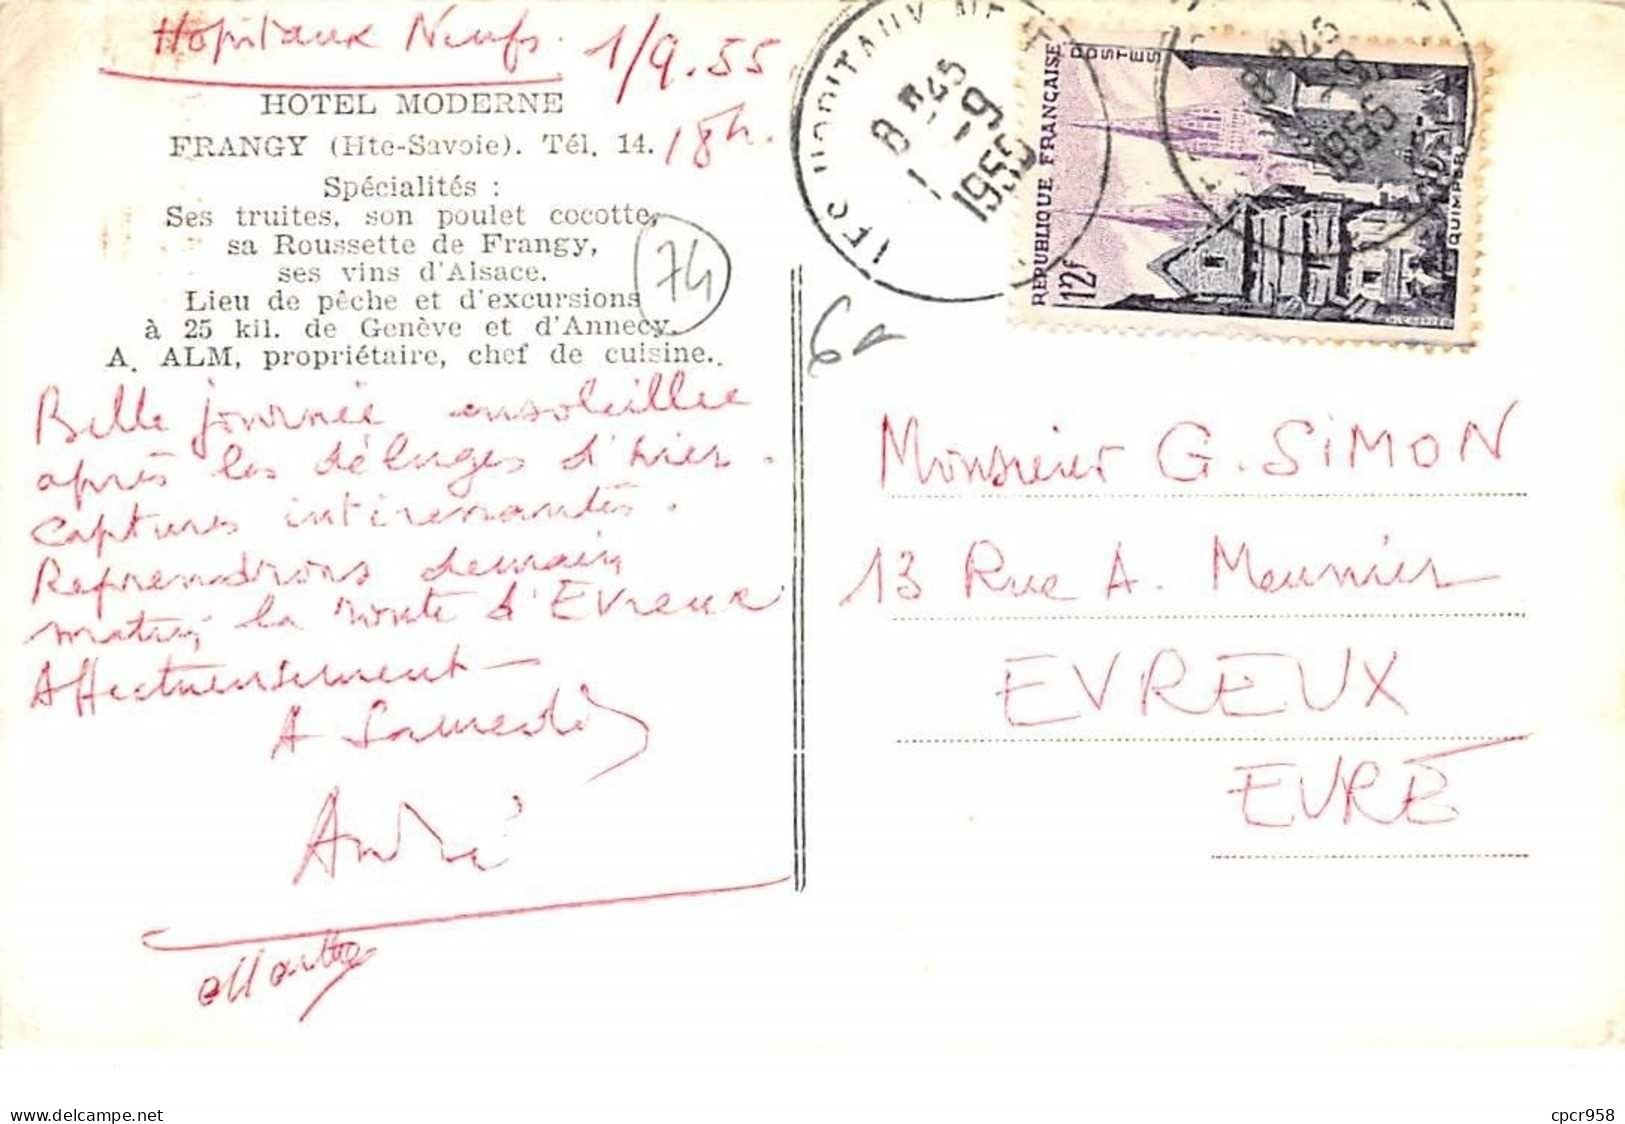 Hopitaux Neufs. 1/9.55
18h.
HOTEL MODERNE
FRANGY (Hte-Savoie). Tél. 14.
Spécialités :
Ses truites, son poulet cocotte,
sa Roussette de Frangy,
ses vins d'Alsace.
Lieu de pêche et d'excursions
à 25 kil. de Genève et d'Annecy.
A. ALM, propriétaire, chef de cuisine.
74
Belle journée ensoleillée
après les déluges d'hier.
Captures intéressantes.
Reprendrons demain
matin, la route d'Evreux
Affectueusement
A Samedi
André
Marthe
8 H 45
1 - 9
1955
8 H 45
1955
REPUBLIQUE FRANÇAISE
POSTES
12F
QUIMPER
Monsieur G. SIMON
13 Rue A. Meunier
EVREUX
EURE
cpcr958